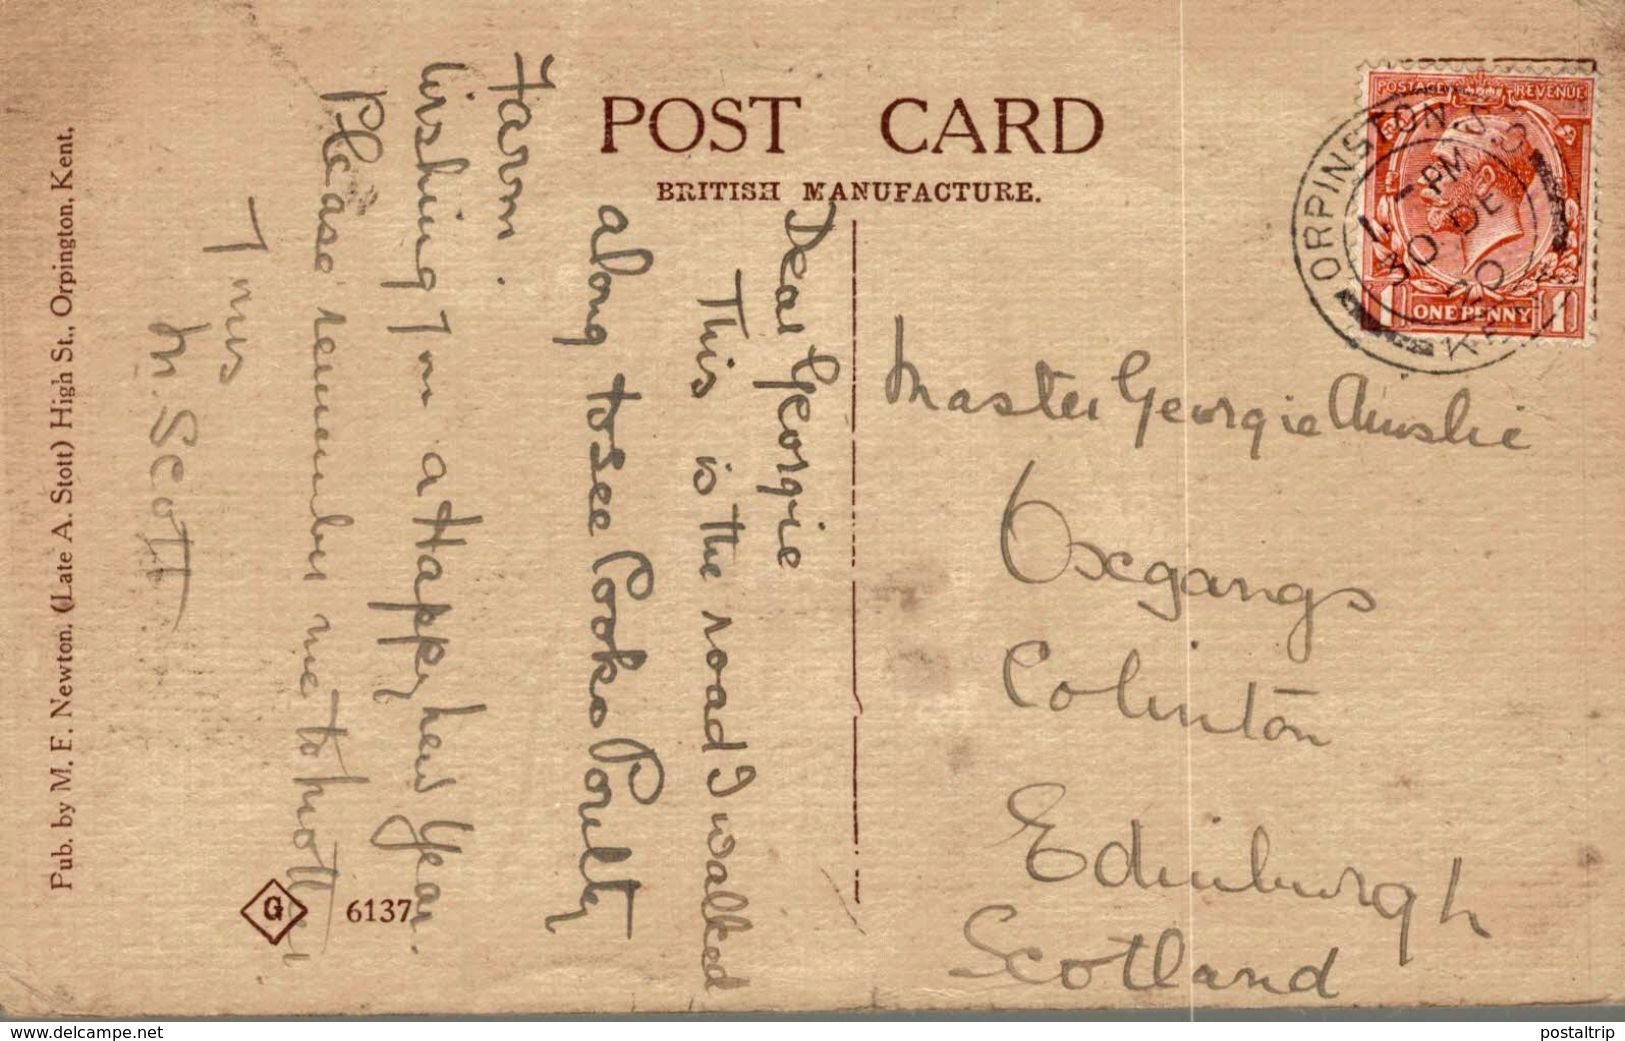 POST CARD
BRITISH MANUFACTURE.
Dear Georgie
This is the road I walked
along to see Cooks Poultry
Farm.
Wishing you a Happy New Year.
Please remember me to Mother.
Yours
M. Scott
Master Georgie Ainslie
Oxgangs
Colinton
Edinburgh
Scotland
POSTAGE REVENUE
1 ONE PENNY 1
ORPINGTON S.O.
1 - PM
30 DE
20
KENT
Pub. by M. E. Newton. (Late A. Stott) High St., Orpington, Kent.
G 6137
www.delcampe.net
postaltrip